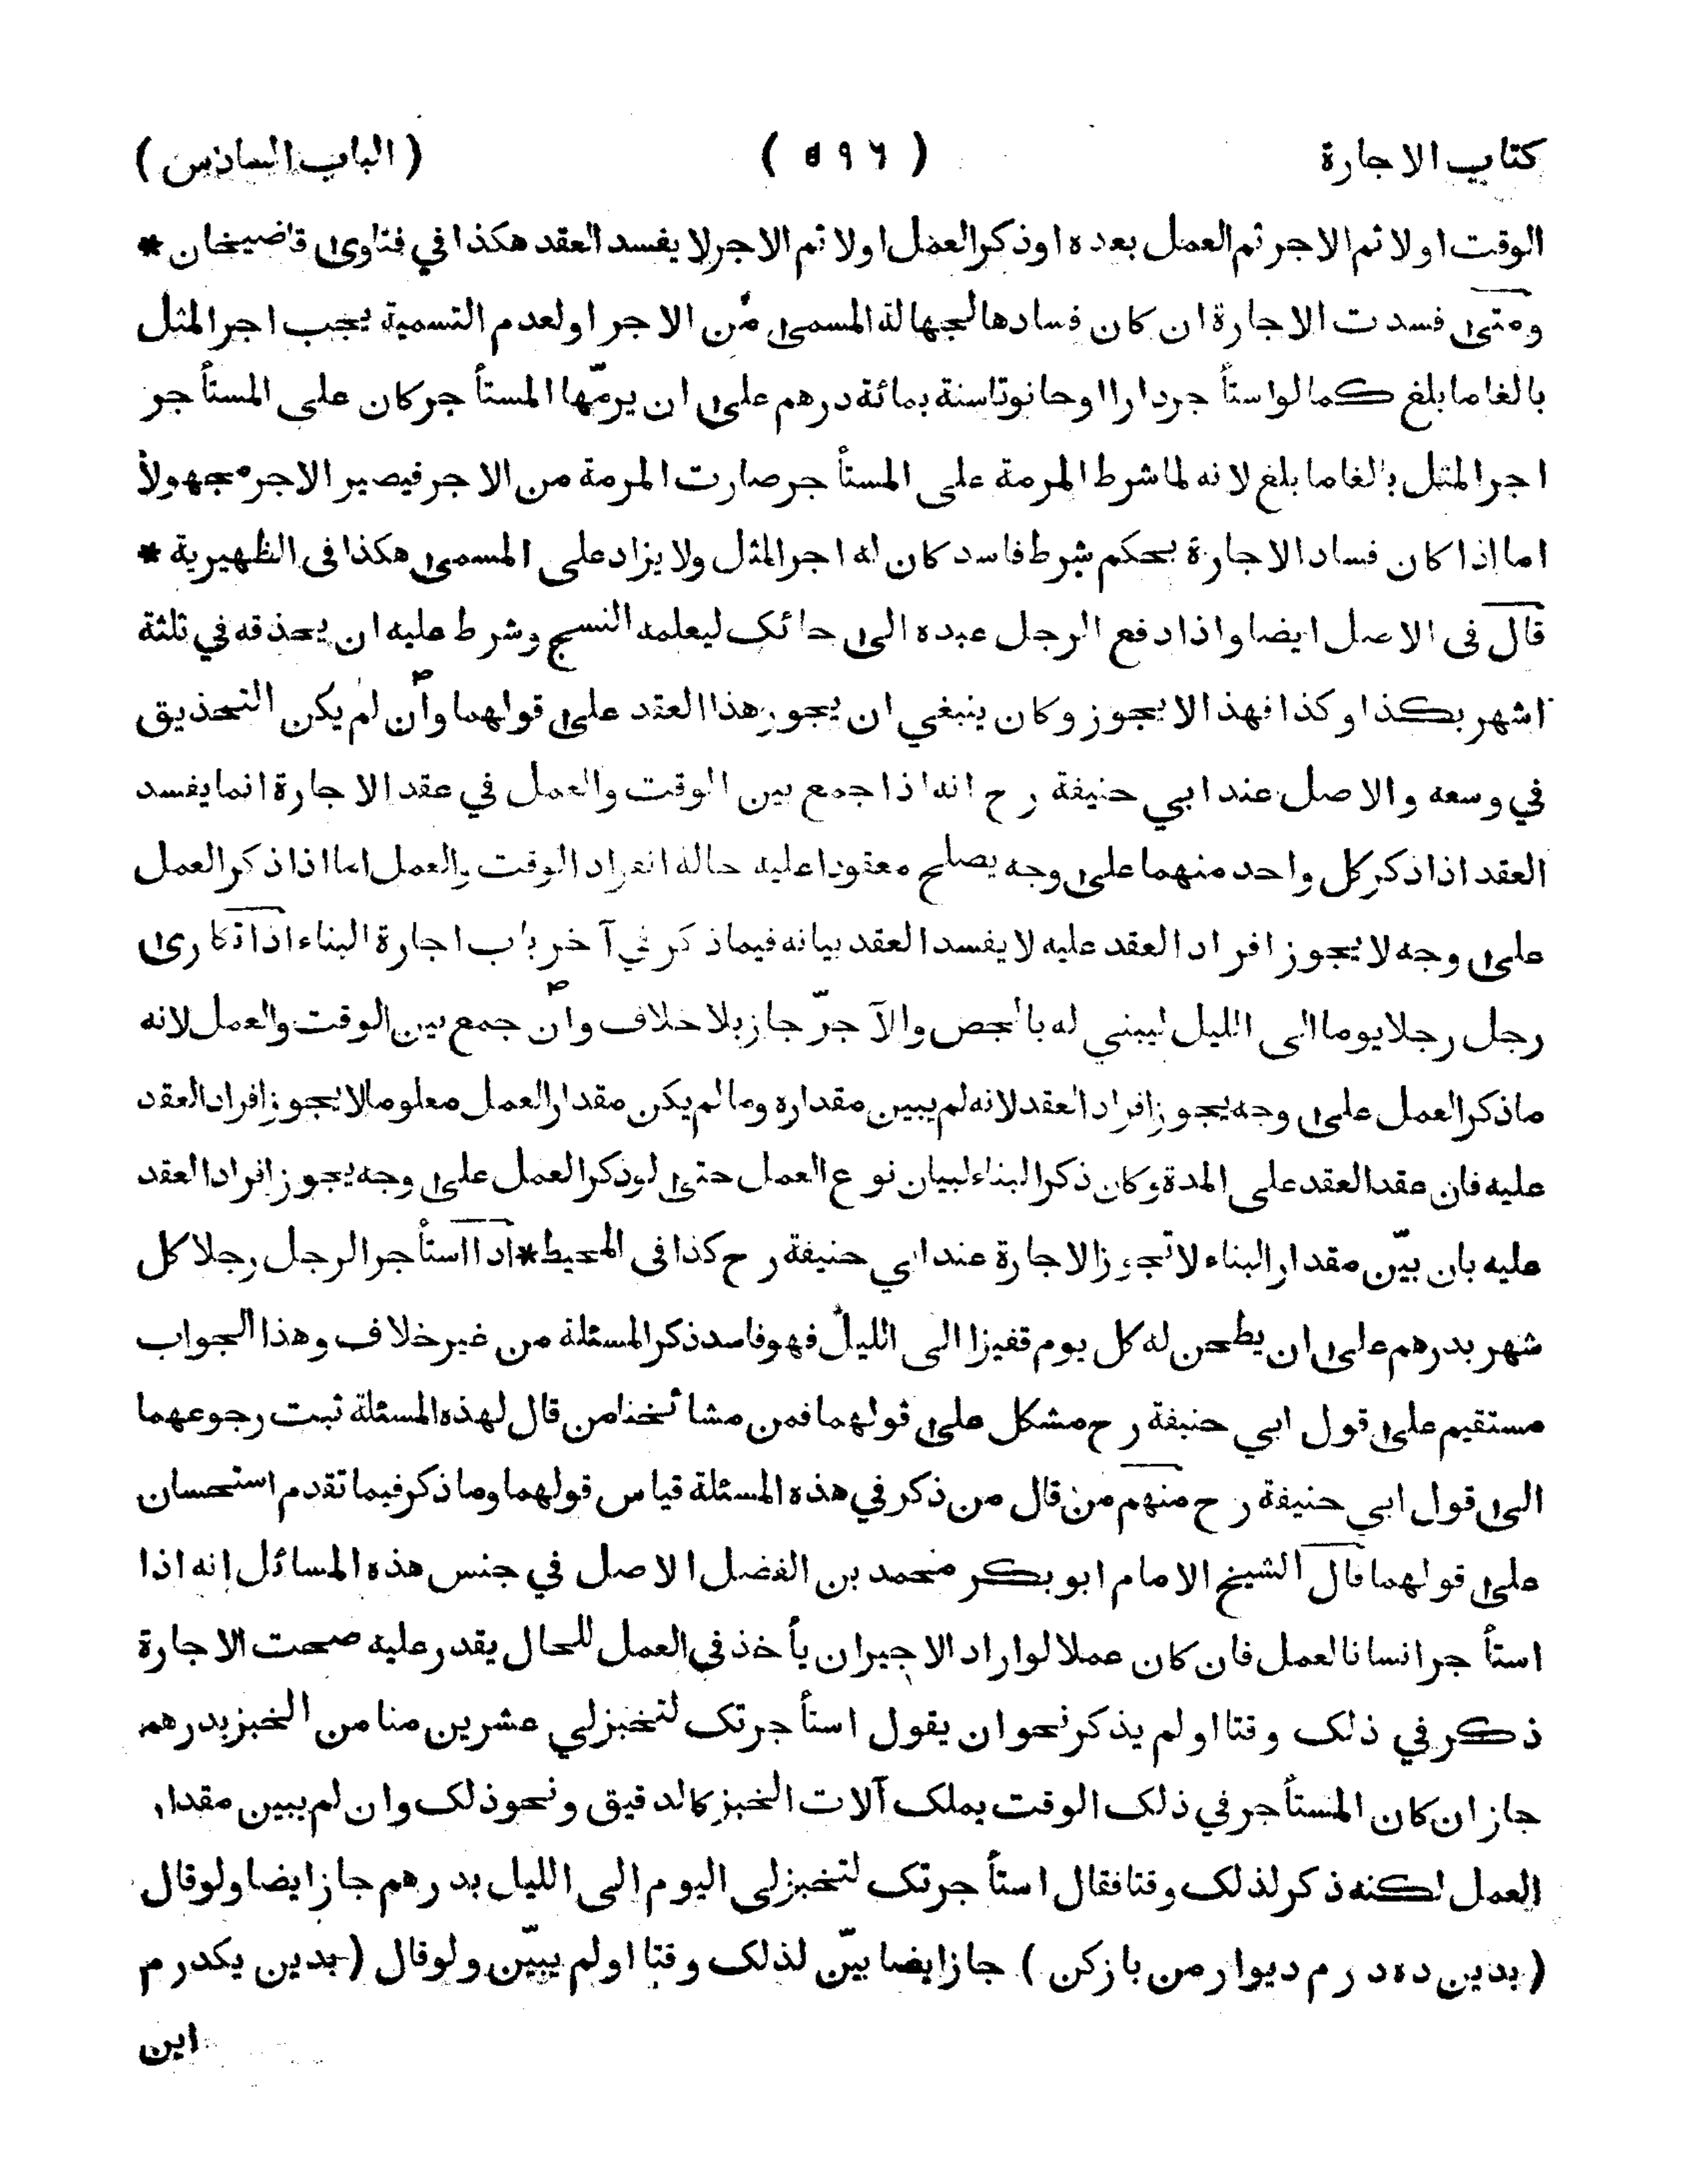 كتاب الاجارة ( ٥٩٦ ) ( الباب السادس )
الوقت اولا ثم الاجر ثم العمل بعده او ذكر العمل اولا ثم الاجر لا يفسد العقد هكذا في فتاوى قاضيخان *
ومتى فسدت الاجارة ان كان فسادها لجهالة المسمى من الاجر او لعدم التسمية يجب اجر المثل
بالغا ما بلغ كما لو استأجر دارا او حانوتا سنة بمائة درهم على ان يرمّها المستأجر كان على المستأجر
اجر المثل بالغا ما بلغ لانه لما شرط المرمة على المستأجر صارت المرمة من الاجر فيصير الاجر مجهولا
اما اذا كان فساد الاجارة بحكم شرط فاسد كان له اجر المثل ولا يزاد على المسمى هكذا فى الظهيرية *
قال فى الاصل ايضا واذا دفع الرجل عبده الى حائك ليعلمه النسج وشرط عليه ان يحذقه في ثلثة
اشهر بكذا وكذا فهذا لا يجوز وكان ينبغي ان يجوز هذا العقد على قولهما وان لم يكن التحذيق
في وسعه والاصل عند ابي حنيفة رح انه اذا جمع بين الوقت والعمل في عقد الاجارة انما يفسد
العقد اذا ذكر كل واحد منهما على وجه يصلح معقودا عليه حالة انفراد الوقت والعمل اما اذا ذكر العمل
على وجه لا يجوز افراد العقد عليه لا يفسد العقد بيانه فيما ذكر في آخر باب اجارة البناء اذا تكارى
رجل رجلا يوما الى الليل ليبني له بالجص والآجرّ جاز بلا خلاف وان جمع بين الوقت والعمل لانه
ما ذكر العمل على وجه يجوز افراد العقد لانه لم يبين مقداره وما لم يكن مقدار العمل معلوما لا يجوز افراد العقد
عليه فان عقد العقد على المدة وكان ذكر البناء لبيان نوع العمل حتى لو ذكر العمل على وجه يجوز افراد العقد
عليه بان بيّن مقدار البناء لا تجوز الاجارة عند ابي حنيفة رح كذا فى المحيط * اذا استأجر الرجل رجلا كل
شهر بدرهم على ان يطحن له كل يوم قفيزا الى الليل فهو فاسد ذكر المسئلة من غير خلاف وهذا الجواب
مستقيم على قول ابي حنيفة رح مشكل على قولهما فمن مشائخنا من قال لهذه المسئلة ثبت رجوعهما
الى قول ابي حنيفة رح منهم من قال من ذكر في هذه المسئلة قياس قولهما وما ذكر فيما تقدم استحسان
على قولهما قال الشيخ الامام ابو بكر محمد بن الفضل الاصل في جنس هذه المسائل انه اذا
استأجر انسانا لعمل فان كان عملا لو اراد الاجير ان يأخذ في العمل للحال يقدر عليه صحت الاجارة
ذكر في ذلك وقتا او لم يذكر نحو ان يقول استأجرتك لتخبز لي عشرين منا من الخبز بدرهم
جاز ان كان المستأجر في ذلك الوقت يملك آلات الخبز كالدقيق ونحو ذلك وان لم يبين مقدار
العمل لكنه ذكر لذلك وقتا فقال استأجرتك لتخبز لى اليوم الى الليل بدرهم جاز ايضا ولو قال
( بدين ده درم ديوار من باز كن ) جاز ايضا بيّن لذلك وقتا او لم يبيّن ولو قال ( بدين يكدرم
اين